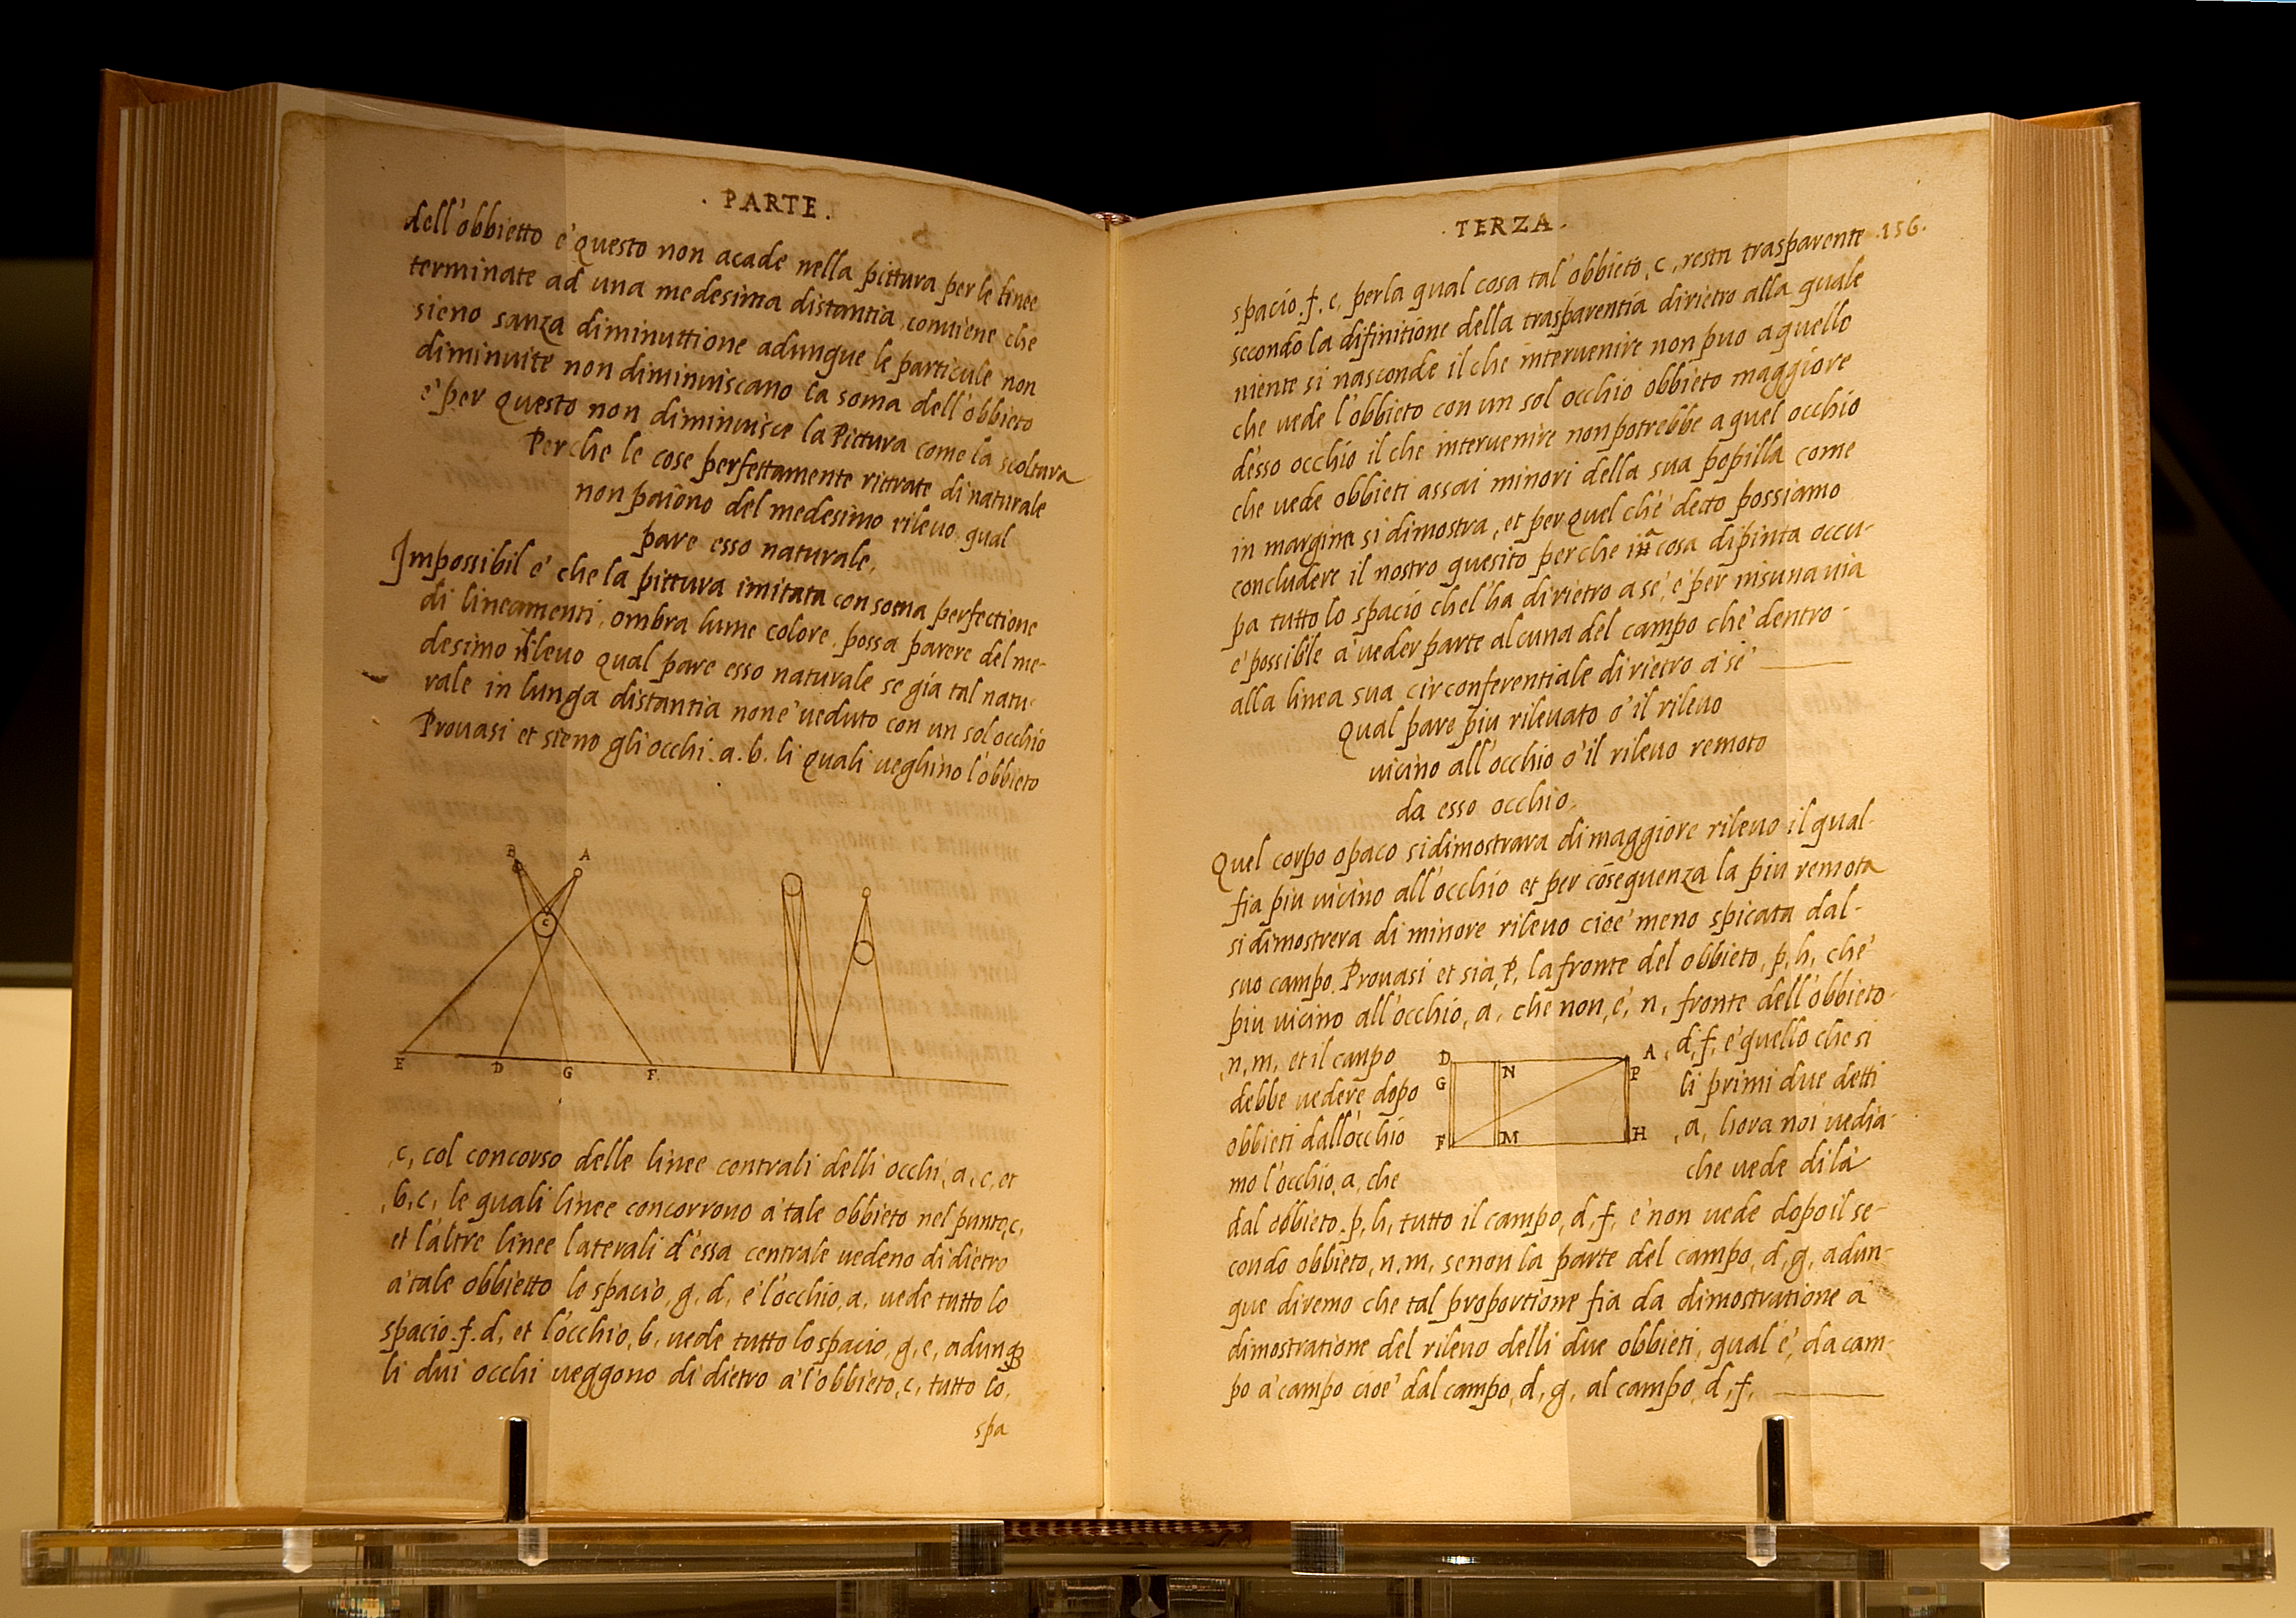 · PARTE ·
dell'obbietto e' questo non acade nella pittura per le linee
terminate ad una medesima distantia conviene che
sieno sanza diminuttione adunque le particule non
diminuite non diminuiscano la soma dell'obbieto
e' per questo non diminuisce la Pittura come la scoltura
Perche le cose perfettamente rittrate di naturale
non paiono del medesimo rilevo qual
pare esso naturale,
Impossibil e' che la pittura imitata con soma perfectione
di lineamenti, ombra lume colore, possa parere del me-
desimo rilevo qual pare esso naturale se gia tal natu-
rale in lunga distantia non e' veduto con un sol occhio
Provasi et sieno gli occhi .a.b. li quali veghino l'obbieto
B A
C
E D G F
,c, col concorso delle linee centrali delli occhi, a, c, et
,b,c, le quali linee concorrono a' tale obbieto nel punto,c,
et l'altre linee laterali d'essa centrale vedeno di dietro
a' tale obbietto lo spacio, g, d, e l'occhio, a, vede tutto lo
spacio .f.d, et l'occhio, b, vede tutto lo spacio, g, e, adunq
li dui occhi veggono di dietro a' l'obbieto, c, tutto lo,
spa
· TERZA ·
.156.
spacio .f.e, perla qual cosa tal'obbieto, c, resta trasparente
secondo la difinitione della trasparentia dirietro alla quale
niente si nasconde il che intervenire non puo a quello
che vede l'obbieto con un sol occhio obbieto maggiore
d'esso occhio il che intervenire non potrebbe a quel occhio
che vede obbieti assai minori della sua popilla come
in margine si dimostra, et per quel ch'e' detto possiamo
concludere il nostro quesito perche cosa dipinta occu-
pa tutto lo spacio chel'ha dirietro a se', e' per nisuna via
e' possibile a' veder parte alcuna del campo che' dentro -
alla linea sua circonferentiale dirietro a' se'
Qual pare piu rilevato o' il rilevo
vicino all'occhio o' il rilevo remoto
da esso occhio,
Quel corpo opaco si dimostrara di maggiore rilevo il qual
fia piu vicino all'occhio et per cōseguenza la piu remota
si dimostrera di minore rilevo cioe' meno spicata dal-
suo campo. Provasi et sia, P, la fronte del obbieto, p,h, che'
piu vicino all'occhio, a, che non, e', n, fronte dell'obbieto-
,n,m, et il canpo D N A P , d,f, e' quello che si
debbe vedere dopo G li primi due detti
obbieti dall'occhio F M H ,a, hora noi vedia-
mo l'occhio, a, che che vede di la'
dal obbieto .p,h, tutto il campo, d,f, e' non vede dopo il se-
condo obbieto, n,m, senon la parte del campo, d,g, adun-
que diremo che tal proportione fia da dimostratione a'
dimostratione del rilevo delli due obbieti, qual e', da cam-
po a' campo cioe' dal campo, d,g, al campo, d,f,